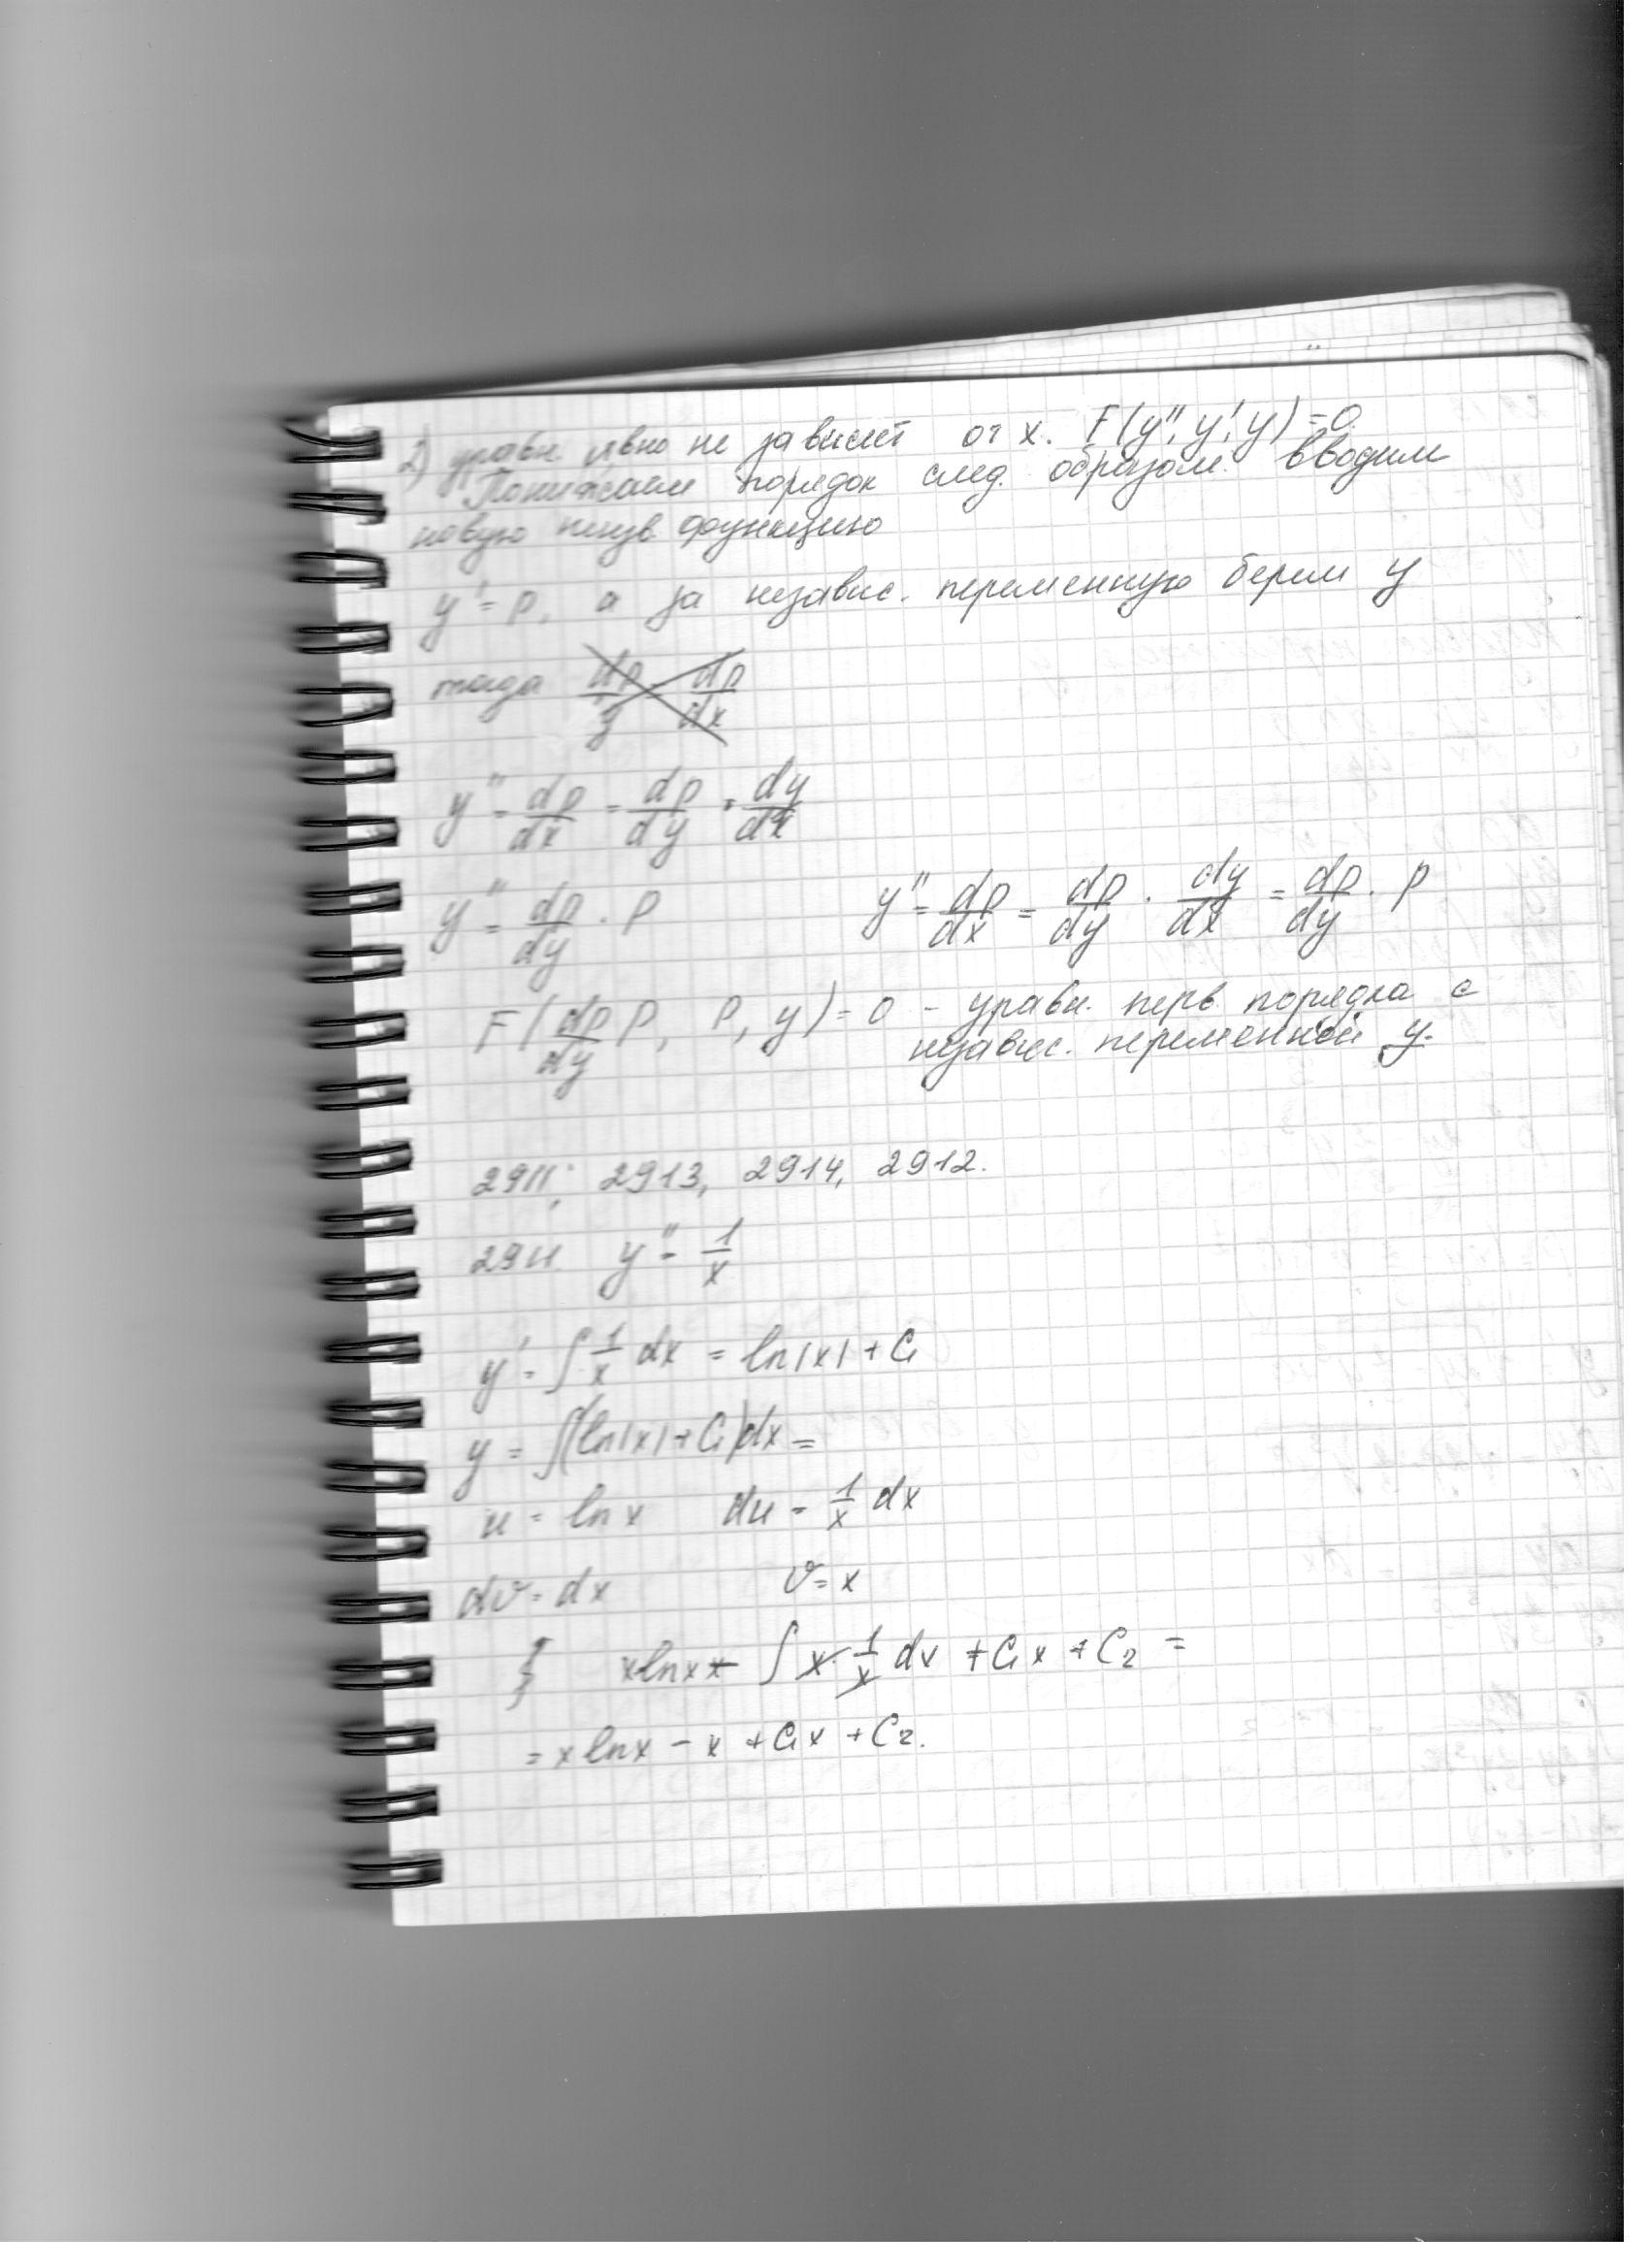 2) уравн. явно не зависит от x. F(y'', y', y) = 0.
Понижаем порядок след. образом. Вводим
новую неизв. функцию
y' = p, а за независ. переменную берем y
тогда dp/y dp/dx
y'' = dp/dx = dp/dy · dy/dx
y'' = dp/dy · p
y'' = dp/dx = dp/dy · dy/dx = dp/dy · p
F(dp/dy p, p, y) = 0 – уравн. перв. порядка с
независ. переменной y.
2911; 2913, 2914, 2912.
2911. y'' = 1/x
y' = ∫ 1/x dx = ln|x| + C₁
y = ∫(ln|x| + C₁)dx =
u = ln x du = 1/x dx
dv = dx v = x
x ln x - ∫ x · 1/x dx + C₁x + C₂ =
= x ln x – x + C₁x + C₂.